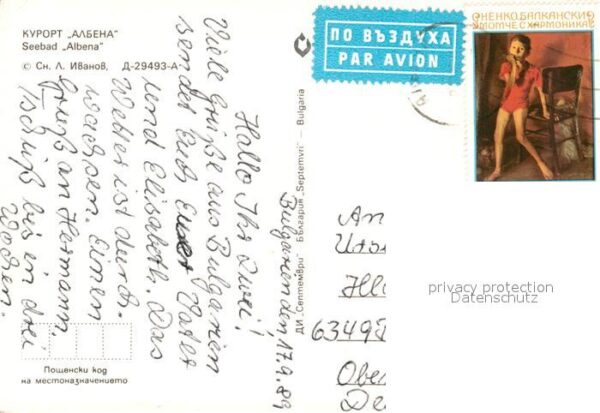 КУРОРТ „АЛБЕНА"
Seebad „Albena"
© Сн. Л. Иванов, Д-29493-А
ПО ВЪЗДУХА
PAR AVION
НЕНКО БАЛКАНСКИ
МОМЧЕ С ХАРМОНИКА
ДИ „Септември" · България „Septemvri" — Bulgaria
Bulgarien den 17.9.89
Hallo Ihr Zwei!
Viele Grüße aus Bulgarien
sendet Euch Euer Vater
und Elisabeth. Das
Wetter ist durch-
wachsen. Einen
Gruß an Hermann.
Tschüß bis in drei
Wochen.
An
6349
Obe
De
privacy protection
Datenschutz
Пощенски код
на местоназначението